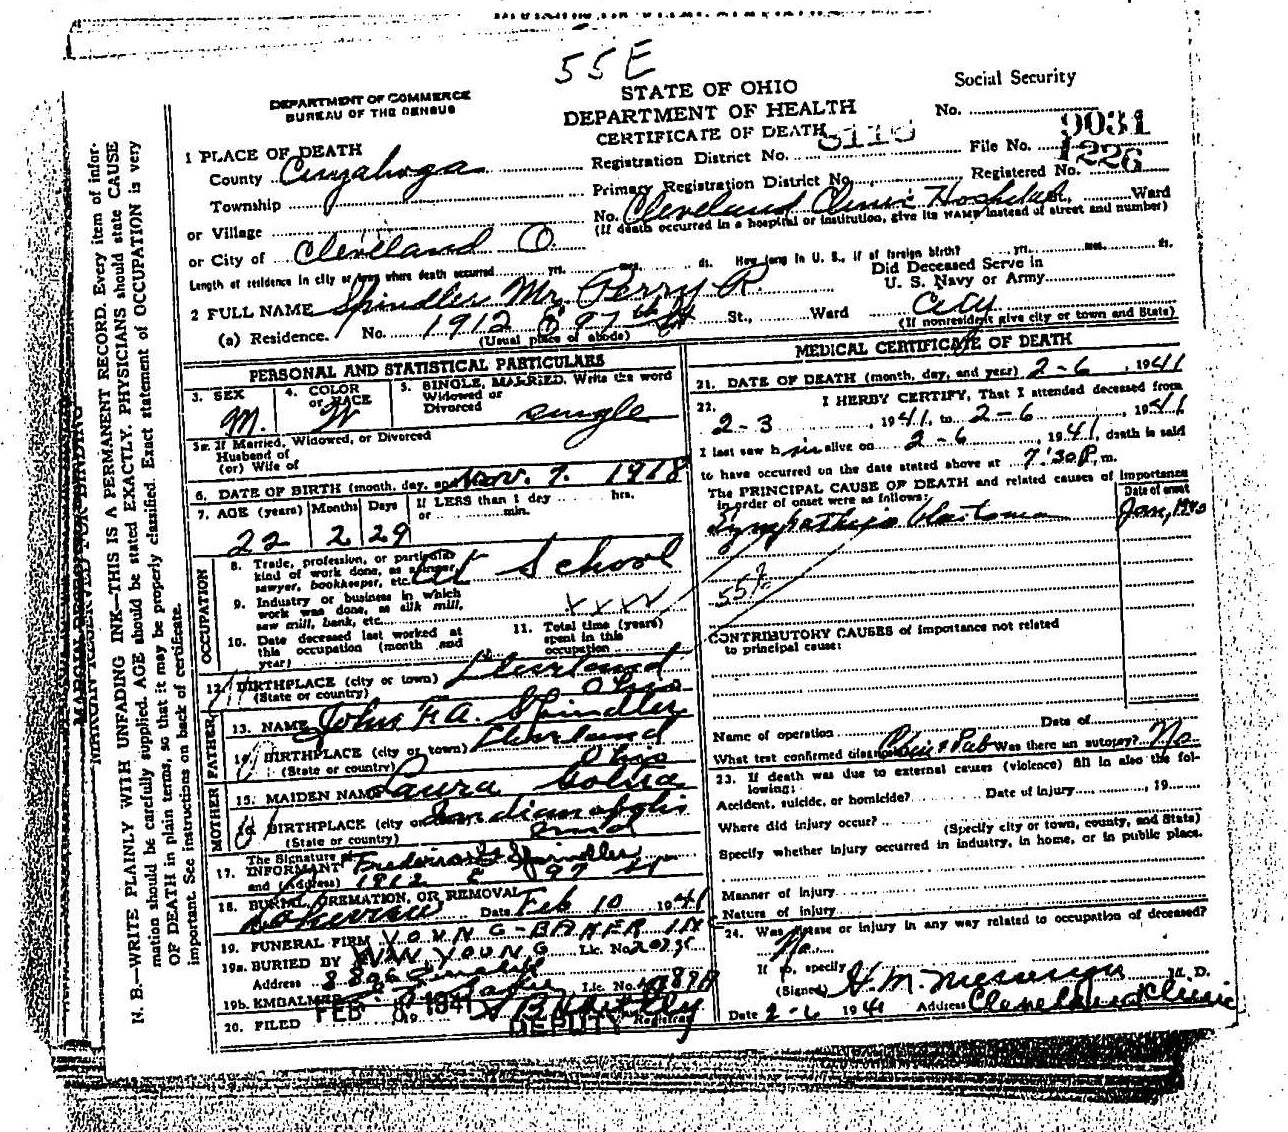 55E
DEPARTMENT OF COMMERCE
BUREAU OF THE CENSUS
STATE OF OHIO
DEPARTMENT OF HEALTH
CERTIFICATE OF DEATH
Social Security
No.
1 PLACE OF DEATH
County Cuyahoga
Registration District No.
File No. 9031
Township
Primary Registration District No.
Registered No. 1226
or Village
No. Cleveland Clinic Hospital, Ward
(If death occurred in a hospital or institution, give its NAME instead of street and number)
or City of Cleveland O.
Length of residence in city or town where death occurred yrs. mos. ds. How long in U. S., if of foreign birth? yrs. mos. ds.
Did Deceased Serve in
U. S. Navy or Army
2 FULL NAME Spindler Mr. Perry R.
(a) Residence. No. 1912 E 97th St St., Ward City
(Usual place of abode)
(If nonresident give city or town and State)
PERSONAL AND STATISTICAL PARTICULARS
3. SEX M.
4. COLOR or RACE W
5. SINGLE, MARRIED. Write the word
Widowed or
Divorced single
5a. If Married, Widowed, or Divorced
Husband of
(or) Wife of
6. DATE OF BIRTH (month, day, and Nov. 7. 1918
7. AGE (years) Months Days If LESS than 1 day hrs.
or min.
22 2 29
OCCUPATION
8. Trade, profession, or particular
kind of work done, as spinner,
sawyer, bookkeeper, etc. At School
9. Industry or business in which
work was done, as silk mill,
saw mill, bank, etc. xxxx
10. Date deceased last worked at
this occupation (month and
year)
11. Total time (years)
spent in this
occupation
12. BIRTHPLACE (city or town) Cleveland
(State or country) Ohio
FATHER
13. NAME John F. A. Spindler
14. BIRTHPLACE (city or town) Cleveland
(State or country) Ohio
MOTHER
15. MAIDEN NAME Laura
16. BIRTHPLACE (city or town) Indianapolis
(State or country) Ind
17. The Signature of
INFORMANT Spindler
and (Address) 1912 E 97 St
18. BURIAL, CREMATION, OR REMOVAL
Date Feb 10 1941
19. FUNERAL FIRM YOUNG-BAKER INC
19a. BURIED BY YOUNG Lic. No.
Address
19b. EMBALMER Lic. No.
20. FILED FEB 1941 Registrar
DEPUTY
MEDICAL CERTIFICATE OF DEATH
21. DATE OF DEATH (month, day, and year) 2-6, 1941
22. I HERBY CERTIFY, That I attended deceased from
2-3, 1941, to 2-6, 1941
I last saw him alive on 2-6, 1941, death is said
to have occurred on the date stated above at 7:30 P. m.
The PRINCIPAL CAUSE OF DEATH and related causes of importance
in order of onset were as follows:
Date of onset
Jan, 1940
CONTRIBUTORY CAUSES of importance not related
to principal cause:
Name of operation Date of
What test confirmed diagnosis Was there an autopsy? No
23. If death was due to external causes (violence) fill in also the following:
Accident, suicide, or homicide? Date of injury, 19
Where did injury occur?
(Specify city or town, county, and State)
Specify whether injury occurred in industry, in home, or in public place.
Manner of injury
Nature of injury
24. Was disease or injury in any way related to occupation of deceased?
No
If so, specify
(Signed) H. M. M. D.
Date 2-6 1941 Address Cleveland Clinic
N. B.—WRITE PLAINLY WITH UNFADING INK—THIS IS A PERMANENT RECORD. Every item of information should be carefully supplied. AGE should be stated EXACTLY. PHYSICIANS should state CAUSE OF DEATH in plain terms, so that it may be properly classified. Exact statement of OCCUPATION is very important. See instructions on back of certificate.